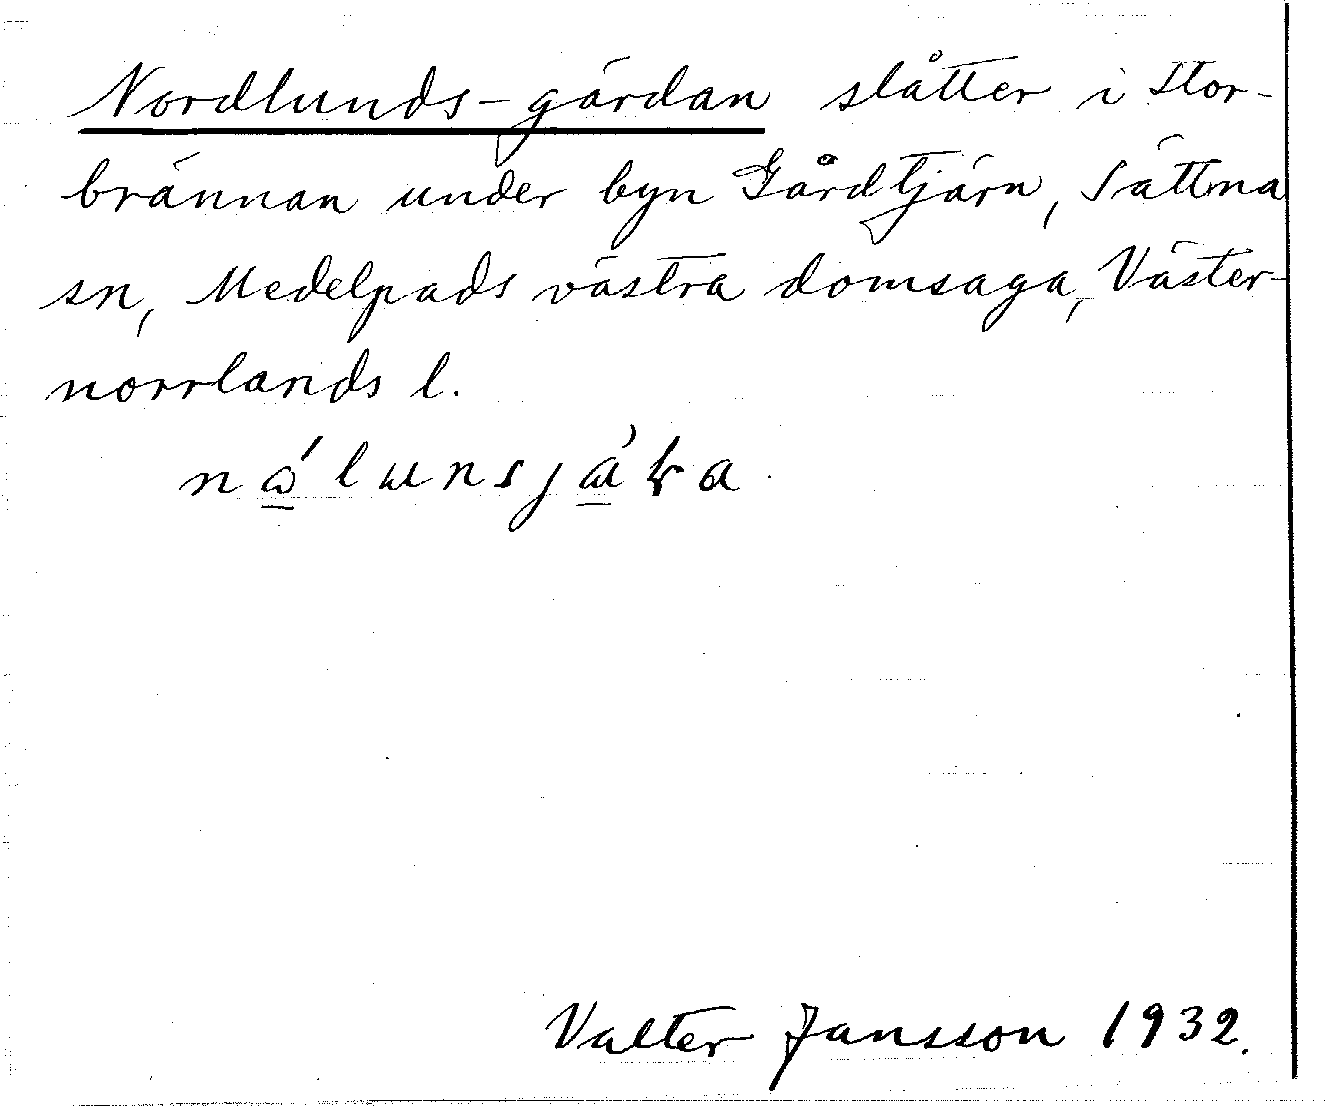 Nordlunds-gärdan slåtter i Stor-
brännan under byn Gårdtjärn, Sättna
sn, Medelpads västra domsaga, Väster-
norrlands l.
Valter Jansson 1932.